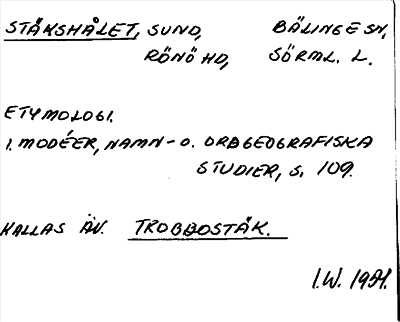 STÄKSHÅLET, SUND, BÄLINGE SN,
RÖNÖ HD, SÖRML. L.
ETYMOLOGI.
I. MODÉER, NAMN- O. ORDGEOGRAFISKA
STUDIER, S. 109.
KALLAS ÄV. TROBBOSTÄK.
I.W. 1991.